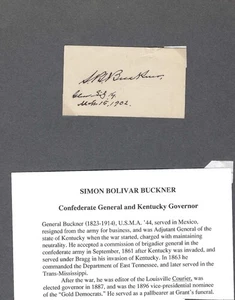 S. B. Buckner,
Glen Lily Ky.
Mch 15, 1902.
SIMON BOLIVAR BUCKNER
Confederate General and Kentucky Governor
General Buckner (1823-1914), U.S.M.A. '44, served in Mexico,
resigned from the army for business, and was Adjutant General of the
state of Kentucky when the war started, charged with maintaining
neutrality. He accepted a commission of brigadier general in the
confederate army in September, 1861 after Kentucky was invaded, and
served under Bragg in his invasion of Kentucky. In 1863 he
commanded the Department of East Tennessee, and later served in the
Trans-Mississippi.
After the war, he was editor of the Louisville Courier, was
elected governor in 1887, and was the 1896 vice-presidential nominee
of the "Gold Democrats." He served as pallbearer at Grant's funeral.